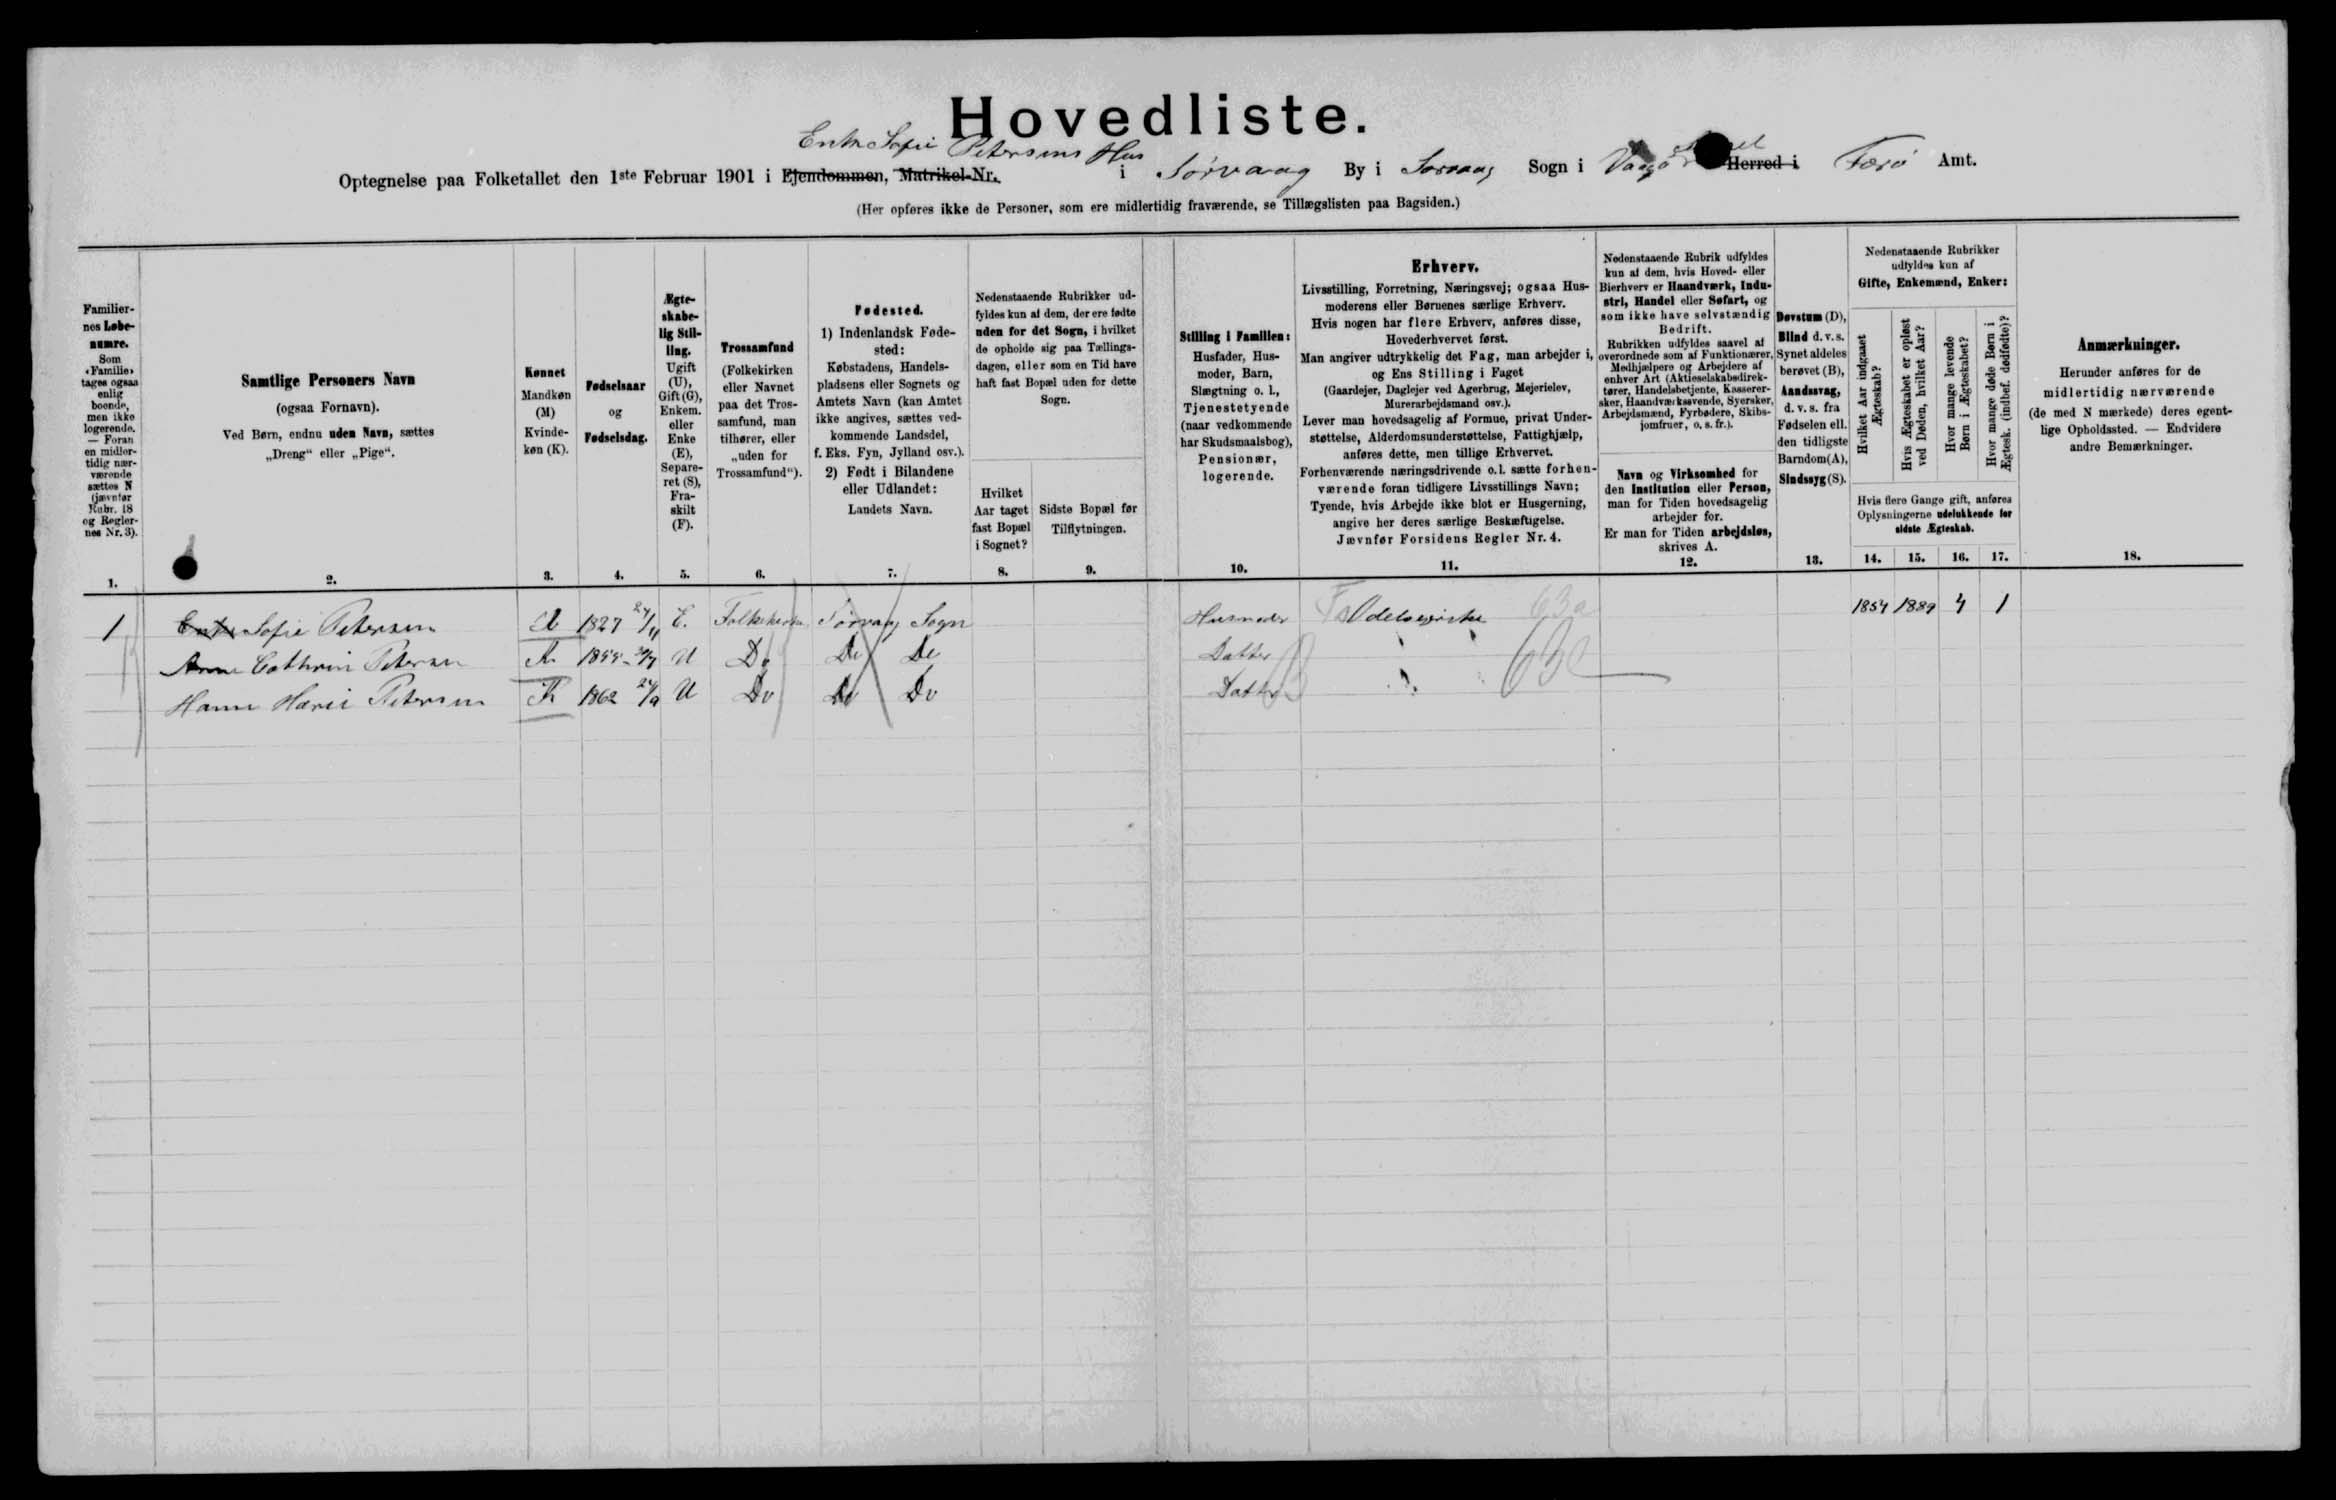 Hovedliste.
Enke Sofie Petersens Hus
Optegnelse paa Folketallet den 1ste Februar 1901 i Ejendommen, Matrikel-Nr. i Sørvaag By i Sørvaag Sogn i Vaagø Herred i Færø Amt.
(Her opføres ikke de Personer, som ere midlertidig fraværende, se Tillægslisten paa Bagsiden.)
Familiernes Løbenumre.
Som «Familie» tages ogsaa enlig boende, men ikke logerende. — Foran en midlertidig nærværende sættes N (jævnfør Rubr. 18 og Reglernes Nr. 3).
1.
Samtlige Personers Navn
(ogsaa Fornavn).
Ved Børn, endnu uden Navn, sættes
„Dreng“ eller „Pige“.
2.
Kønnet
Mandkøn (M)
Kvindekøn (K).
3.
Fødselsaar
og
Fødselsdag.
4.
Ægteskabelig Stilling.
Ugift (U), Gift (G), Enkem. eller Enke (E), Separeret (S), Fraskilt (F).
5.
Trossamfund
(Folkekirken eller Navnet paa det Trossamfund, man tilhører, eller „uden for Trossamfund“).
6.
Fødested.
1) Indenlandsk Fødested:
Købstadens, Handelspladsens eller Sognets og Amtets Navn (kan Amtet ikke angives, sættes vedkommende Landsdel, f. Eks. Fyn, Jylland osv.).
2) Født i Bilandene eller Udlandet:
Landets Navn.
7.
Nedenstaaende Rubrikker udfyldes kun af dem, der ere fødte uden for det Sogn, i hvilket de opholde sig paa Tællingsdagen, eller som en Tid have haft fast Bopæl uden for dette Sogn.
Hvilket Aar taget fast Bopæl i Sognet?
8.
Sidste Bopæl før Tilflytningen.
9.
Stilling i Familien:
Husfader, Husmoder, Barn, Slægtning o. l., Tjenestetyende (naar vedkommende har Skudsmaalsbog), Pensionær, logerende.
10.
Erhverv.
Livsstilling, Forretning, Næringsvej; ogsaa Husmoderens eller Børnenes særlige Erhverv.
Hvis nogen har flere Erhverv, anføres disse, Hovederhvervet først.
Man angiver udtrykkelig det Fag, man arbejder i, og Ens Stilling i Faget
(Gaardejer, Daglejer ved Agerbrug, Mejerielev, Murerarbejdsmand osv.).
Lever man hovedsagelig af Formue, privat Understøttelse, Alderdomsunderstøttelse, Fattighjælp, anføres dette, men tillige Erhvervet.
Forhenværende næringsdrivende o. l. sætte forhenværende foran tidligere Livsstillings Navn;
Tyende, hvis Arbejde ikke blot er Husgerning, angive her deres særlige Beskæftigelse.
Jævnfør Forsidens Regler Nr. 4.
11.
Nedenstaaende Rubrik udfyldes kun af dem, hvis Hoved- eller Bierhverv er Haandværk, Industri, Handel eller Søfart, og som ikke have selvstændig Bedrift.
Rubrikken udfyldes saavel af overordnede som af Funktionærer, Medhjælpere og Arbejdere af enhver Art (Aktieselskabsdirektører, Handelsbetjente, Kasserersker, Haandværkssvende, Syersker, Arbejdsmænd, Fyrbødere, Skibsjomfruer, o. s. fr.).
Navn og Virksomhed for den Institution eller Person, man for Tiden hovedsagelig arbejder for.
Er man for Tiden arbejdsløs, skrives A.
12.
Døvstum (D),
Blind d. v. s. Synet aldeles berøvet (B),
Aandssvag, d. v. s. fra Fødselen ell. den tidligste Barndom (A),
Sindssyg (S).
13.
Nedenstaaende Rubrikker udfyldes kun af
Gifte, Enkemænd, Enker:
Hvilket Aar indgaaet Ægteskab?
Hvis Ægteskabet er opløst ved Døden, hvilket Aar?
Hvor mange levende Børn i Ægteskabet?
Hvor mange døde Børn i Ægtesk. (indbef. dødfødte)?
Hvis flere Gange gift, anføres Oplysningerne udelukkende for sidste Ægteskab.
14. 15. 16. 17.
Anmærkninger.
Herunder anføres for de midlertidig nærværende (de med N mærkede) deres egentlige Opholdssted. — Endvidere andre Bemærkninger.
18.
1 Enke Sofie Petersen K 1827 24/11 E. Folkekirken Sørvaag Sogn Husmoder Odelsejerske 63a 1854 1889 4 1
Anne Cathrin Petersen K U Do Do Do Datter " " 63c
Hanne Marie Petersen K 1862 24/9 U Do Do Do Datter " "